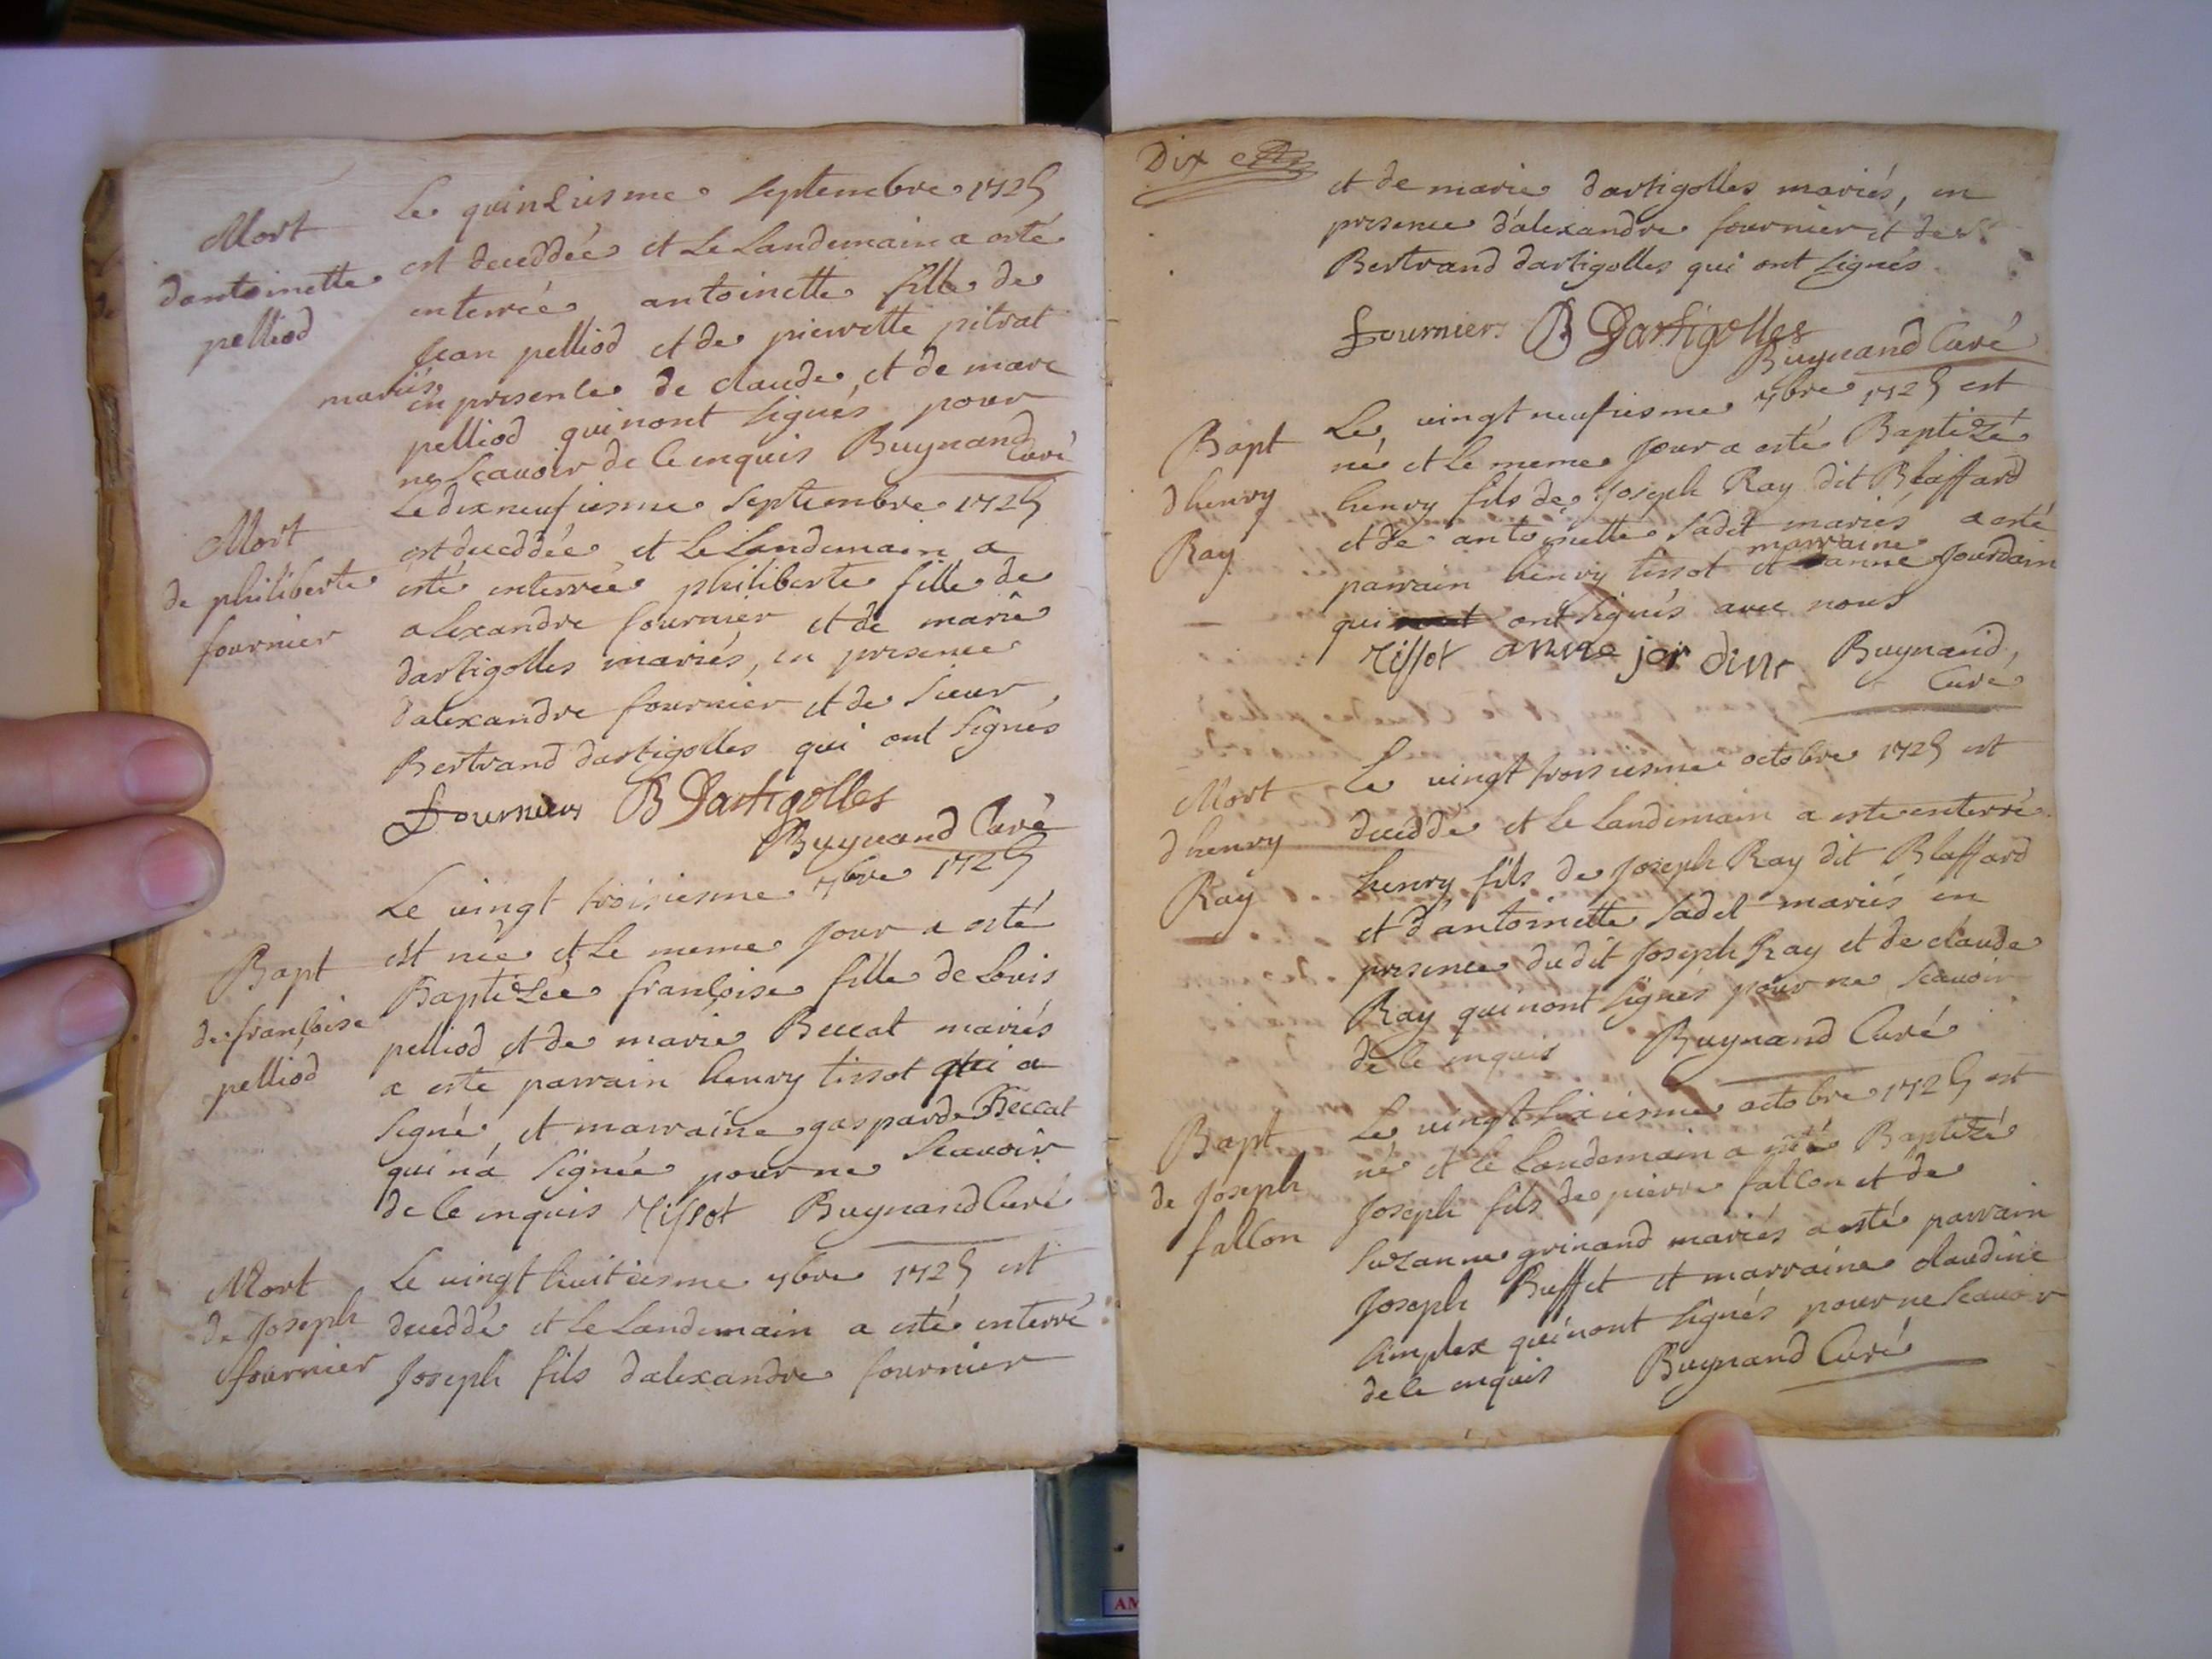 Mort
dantoinette
pelliod
Le quinziesme septembre 1725
est deceddée et Le Landemain a esté
enterrée antoinette fille de
Jean pelliod et de pierrette pitrat
mariés
en presence de claude, et de marc
pelliod qui nont signés pour
ne scavoir de ce enquis Buynand
Curé
Mort
de philiberte
fournier
Le dixneufiesme septembre 1725
est deceddée et le Landemain a
esté enterrée philiberte fille de
alexandre fournier et de marie
dartigolles mariés, en presence
dalexandre fournier et de sieur
Bertrand dartigolles qui ont signés
Fourniers B Dartigolles
Buynand Curé
Bapt
de françoise
pelliod
Le vingt troisiesme 7bre 1725
est née et Le meme Jour a esté
Baptizée françoise fille de Louis
pelliod et de marie Beccat mariés
a esté parrain henry tissot qui a
signé, et marraine gasparde Beccat
qui n'a signée pour ne scavoir
de ce enquis Tissot Buynand Curé
Mort
de Joseph
fournier
Le vingt huitiesme 7bre 1725 est
deceddé et Le Landemain a esté enterré
Joseph fils dalexandre fournier
Dix
et de marie dartigolles mariés, en
presence d'alexandre fournier et de Sr
Bertrand dartigolles qui ont signés
Fourniers B Dartigolles
Buynand Curé
Bapt
d henry
Ray
Le vingt neufiesme 7bre 1725 est
né et Le meme Jour a esté Baptizé
henry fils de Joseph Ray dit Blaffard
et de antoinette sadet mariés a esté
marraine
parrain henry tissot et anne Jourdain
qui ont signés avec nous
Tissot anne jor dins Buynand,
Curé
Mort
d henry
Ray
Le vingt troisiesme octobre 1725 est
deceddé et le Landemain a esté enterré
henry fils de Joseph Ray dit Blaffard
et d'antoinette sadet mariés en
presence du dit Joseph Ray et de claude
Ray qui nont signés pour ne scavoir
de ce enquis Buynand Curé
Bapt
de Joseph
fallon
Le vingt sixiesme octobre 1725 est
né et le Landemain a esté Baptizé
Joseph fils de pierre fallon et de
suzanne grinand mariés a esté parrain
Joseph Buffet et marraine claudine
simplex qui nont signés pour ne scavoir
de ce enquis Buynand Curé